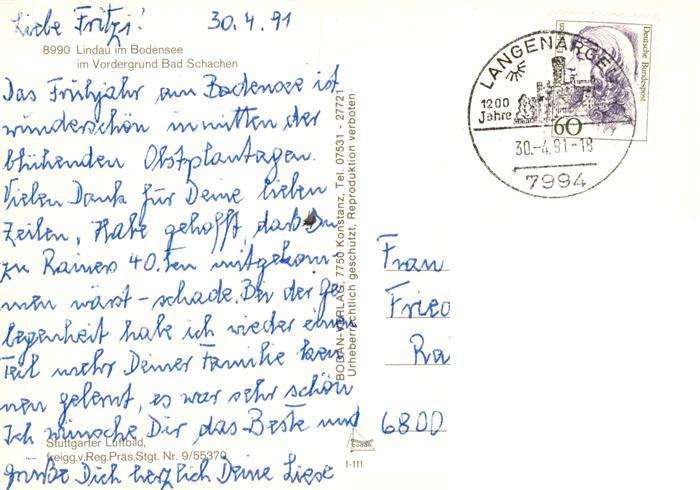 Liebe Fritzi! 30.4.91
8990 Lindau im Bodensee
im Vordergrund Bad Schachen
Das Frühjahr am Bodensee ist
wunderschön inmitten der
blühenden Obstplantagen.
Vielen Dank für Deine lieben
Zeilen, Habe gehofft, daß Du
zu Rainers 40.ten mitgekom-
men wärst - schade. Bei der Ge-
legenheit habe ich wieder einen
Teil mehr Deiner Familie ken
nen gelernt, es war sehr schön
Ich wünsche Dir das Beste und
grüße Dich herzlich Deine Liese
Stuttgarter Luftbild,
freigg.v.Reg.Präs.Stgt. Nr. 9/55370
BODAN-VERLAG, 7750 Konstanz, Tel. 07531 - 27721
Urheberrechtlich geschützt, Reproduktion verboten
BODAN
1-111
LANGENARGEN
1200
Jahre
30.-4.91-18
7994
Deutsche Bundespost
60
Frau
Fried
Ra
6800